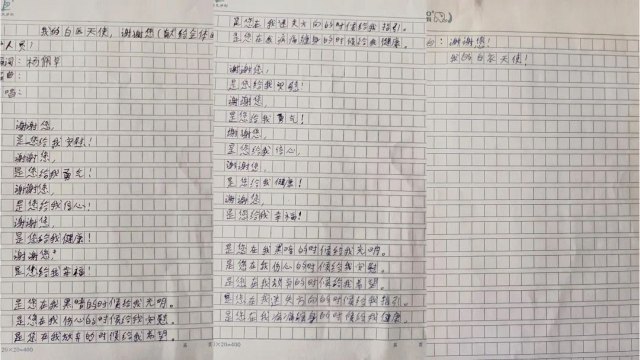 我的白衣天使，谢谢您（献给全体
人员）
词：杨
曲：
唱：
谢谢您，
是您给我安慰！
谢谢您，
是您给我勇气！
谢谢您，
是您给我信心！
谢谢您，
是您给我健康！
谢谢您，
是您给我幸福！
是您在我黑暗的时候给我光明。
是您在我伤心的时候给我安慰。
是您在我缺车的时候给我希望。
20×20=400
是您在我迷失方向的时候给我指引。
是您在我病痛缠身的时候给我健康。
谢谢您，
是您给我安慰！
谢谢您，
是您给我勇气！
谢谢您，
是您给我信心，
谢谢您，
是您给我健康！
谢谢您，
是您给我幸福！
是您在我黑暗的时候给我光明。
是您在我伤心的时候给我安慰。
是您在我的时候给我希望。
是您在我迷失方向的时候给我指引。
是您在我病痛缠身的时候给我健康。
20×20=400
白：谢谢您！
我的白衣天使！